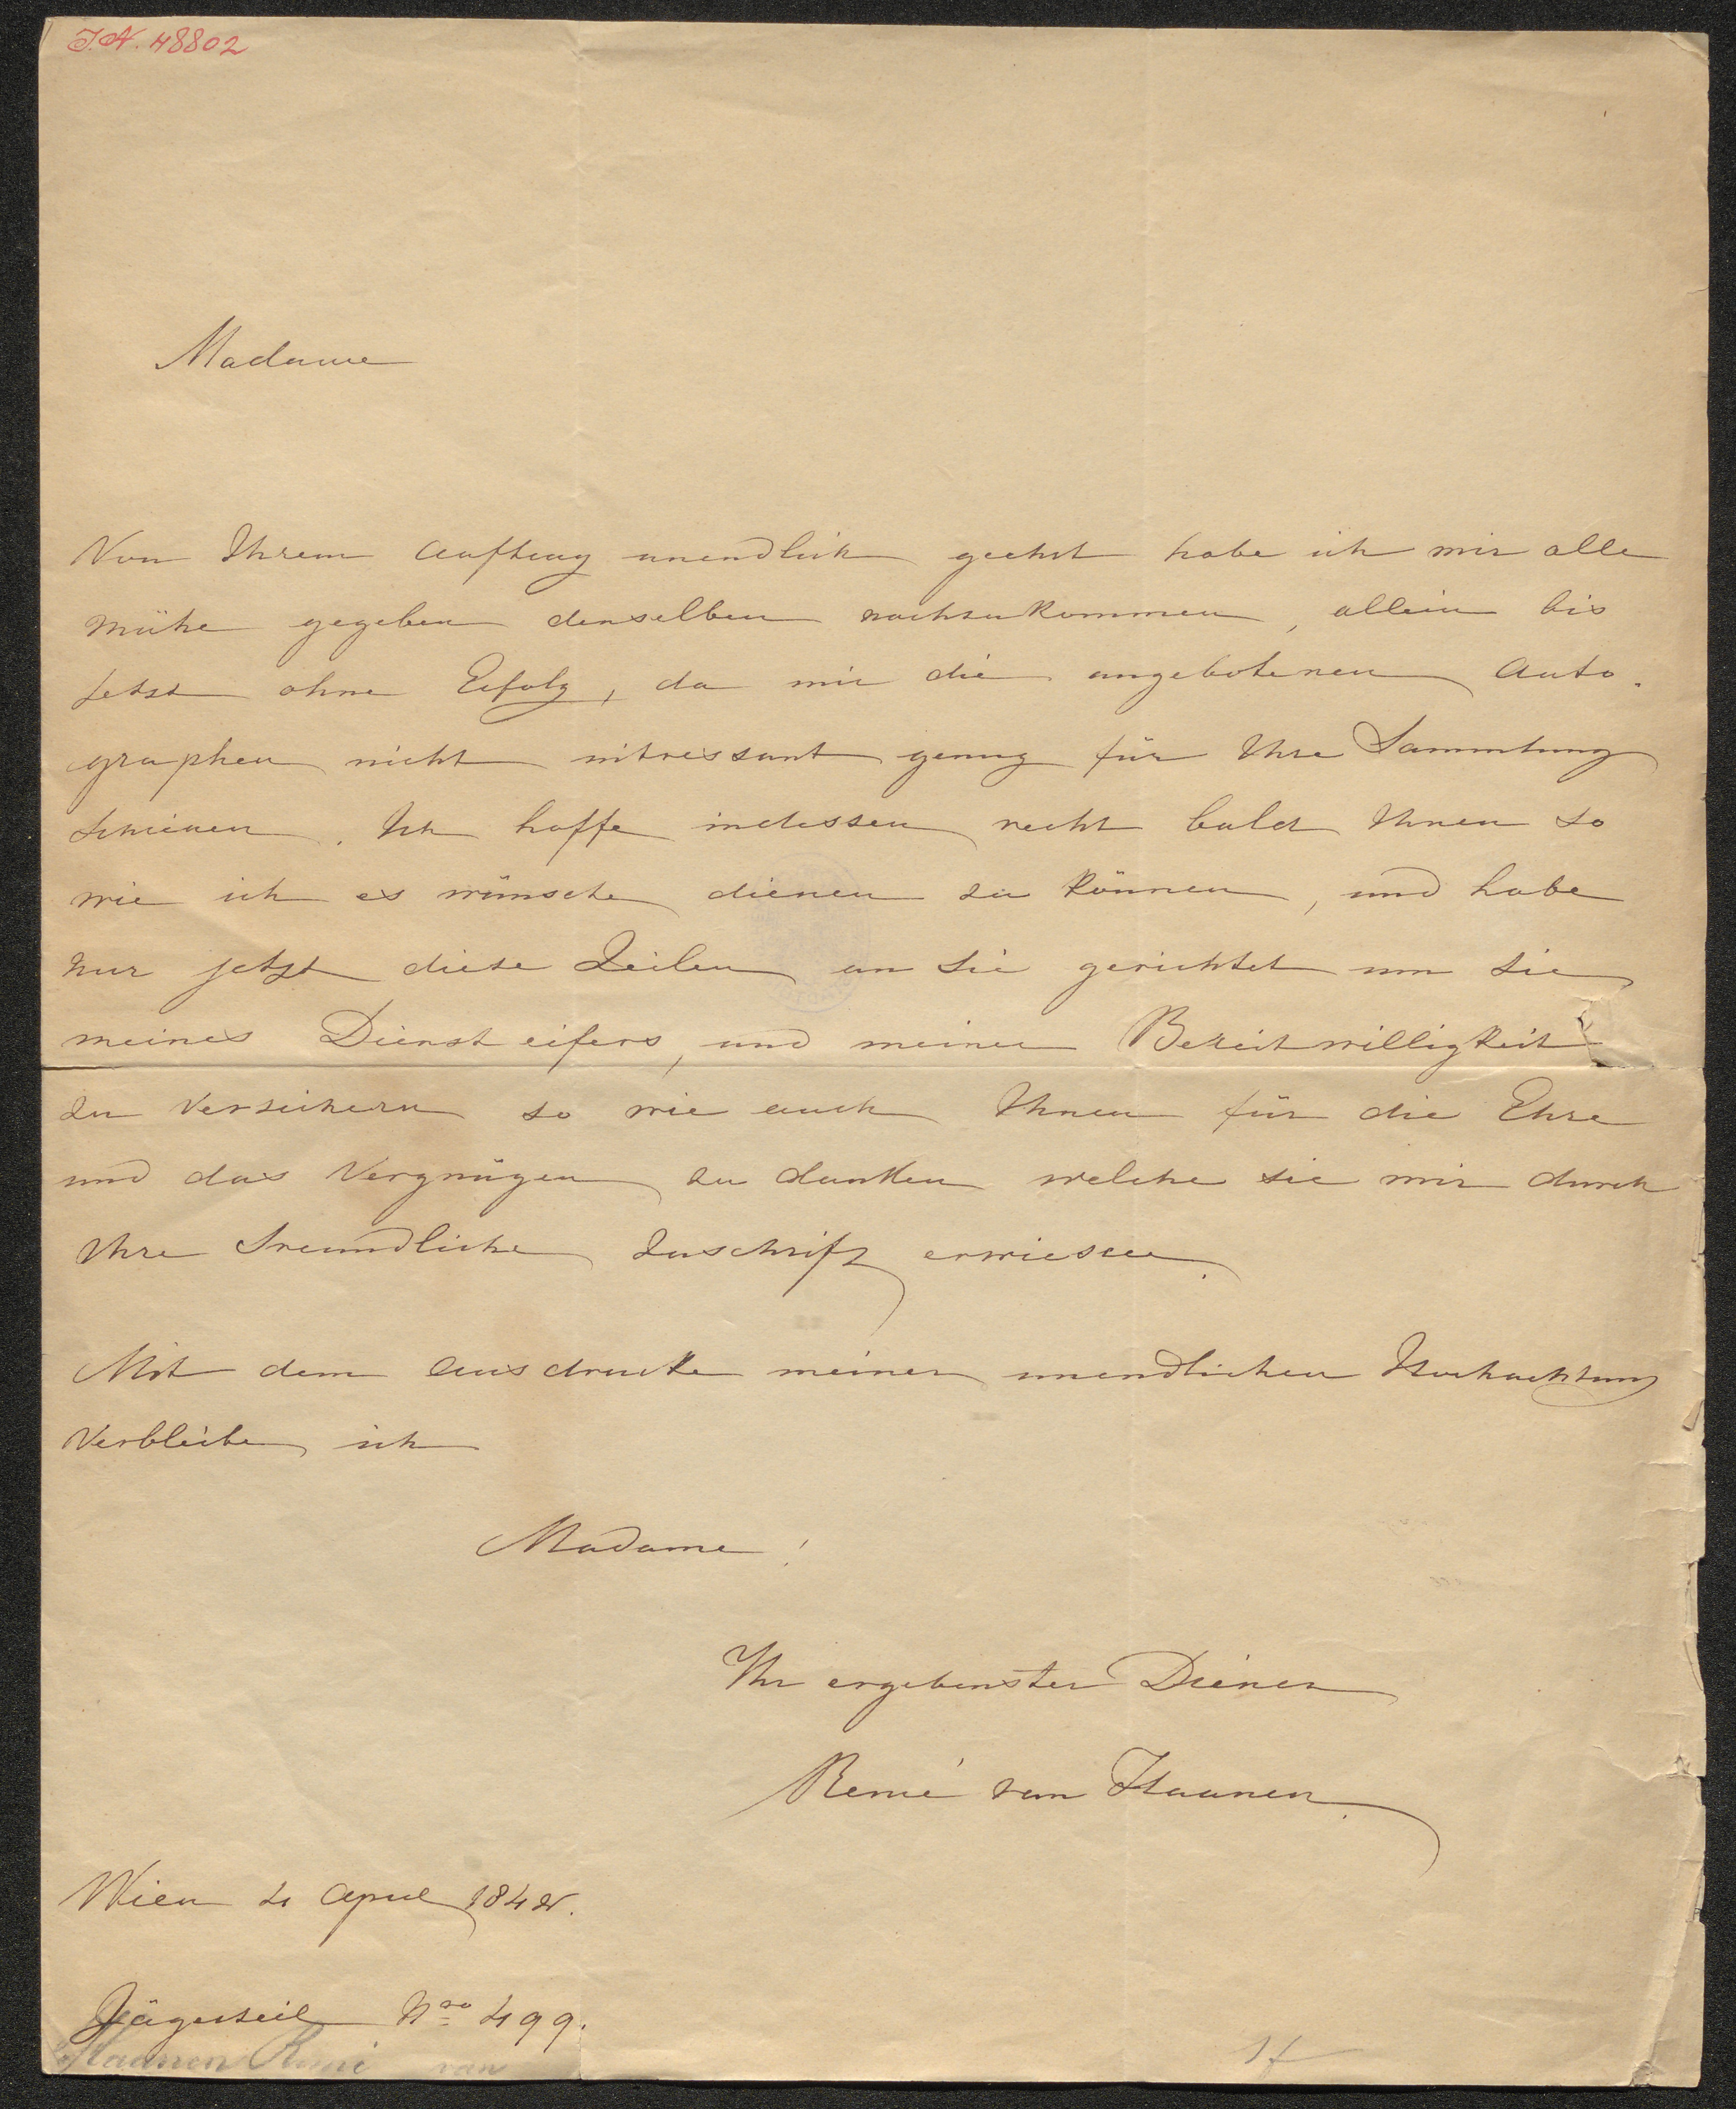 I.N. 48802
Madame
Von Ihrem Auftrag unendlich geehrt habe ich mir alle
mühe gegeben denselben nachzukommen, allein bis
jetzt ohne Erfolg, da mir die angebotenen Auto-
graphen nicht intressant genug für Ihre Sammlung
schienen. Ich hoffe indessen recht bald Ihnen so
wie ich es wünsche dienen zu können, und habe
nur jetzt diese Zeilen an Sie gerichtet um Sie
meines Diensteifers, und meiner Bereitwilligkeit
zu versichern so wie auch Ihnen für die Ehre
und das Vergnügen zu danken welche sie mir durch
Ihre freundliche Zuschrift erwiesen.
Mit dem Ausdrucke meiner unendlichen Hochachtung
verbleibe ich
Madame!
Ihr ergebenster Diener
Remi van Haanen.
Wien 4 April 184
Jägerzeil Nro 499.
Haanen Remi van
1f